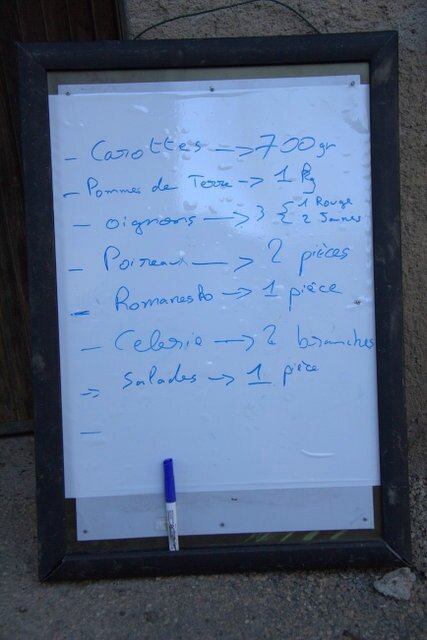 - Carottes → 700gr
- Pommes de Terre → 1 Kg
- oignons → 3 { 1 Rouge
2 Jaunes
- Poireaux → 2 pièces
- Romanesko → 1 pièce
- Celerie → 2 branches
→ Salades → 1 pièce
-